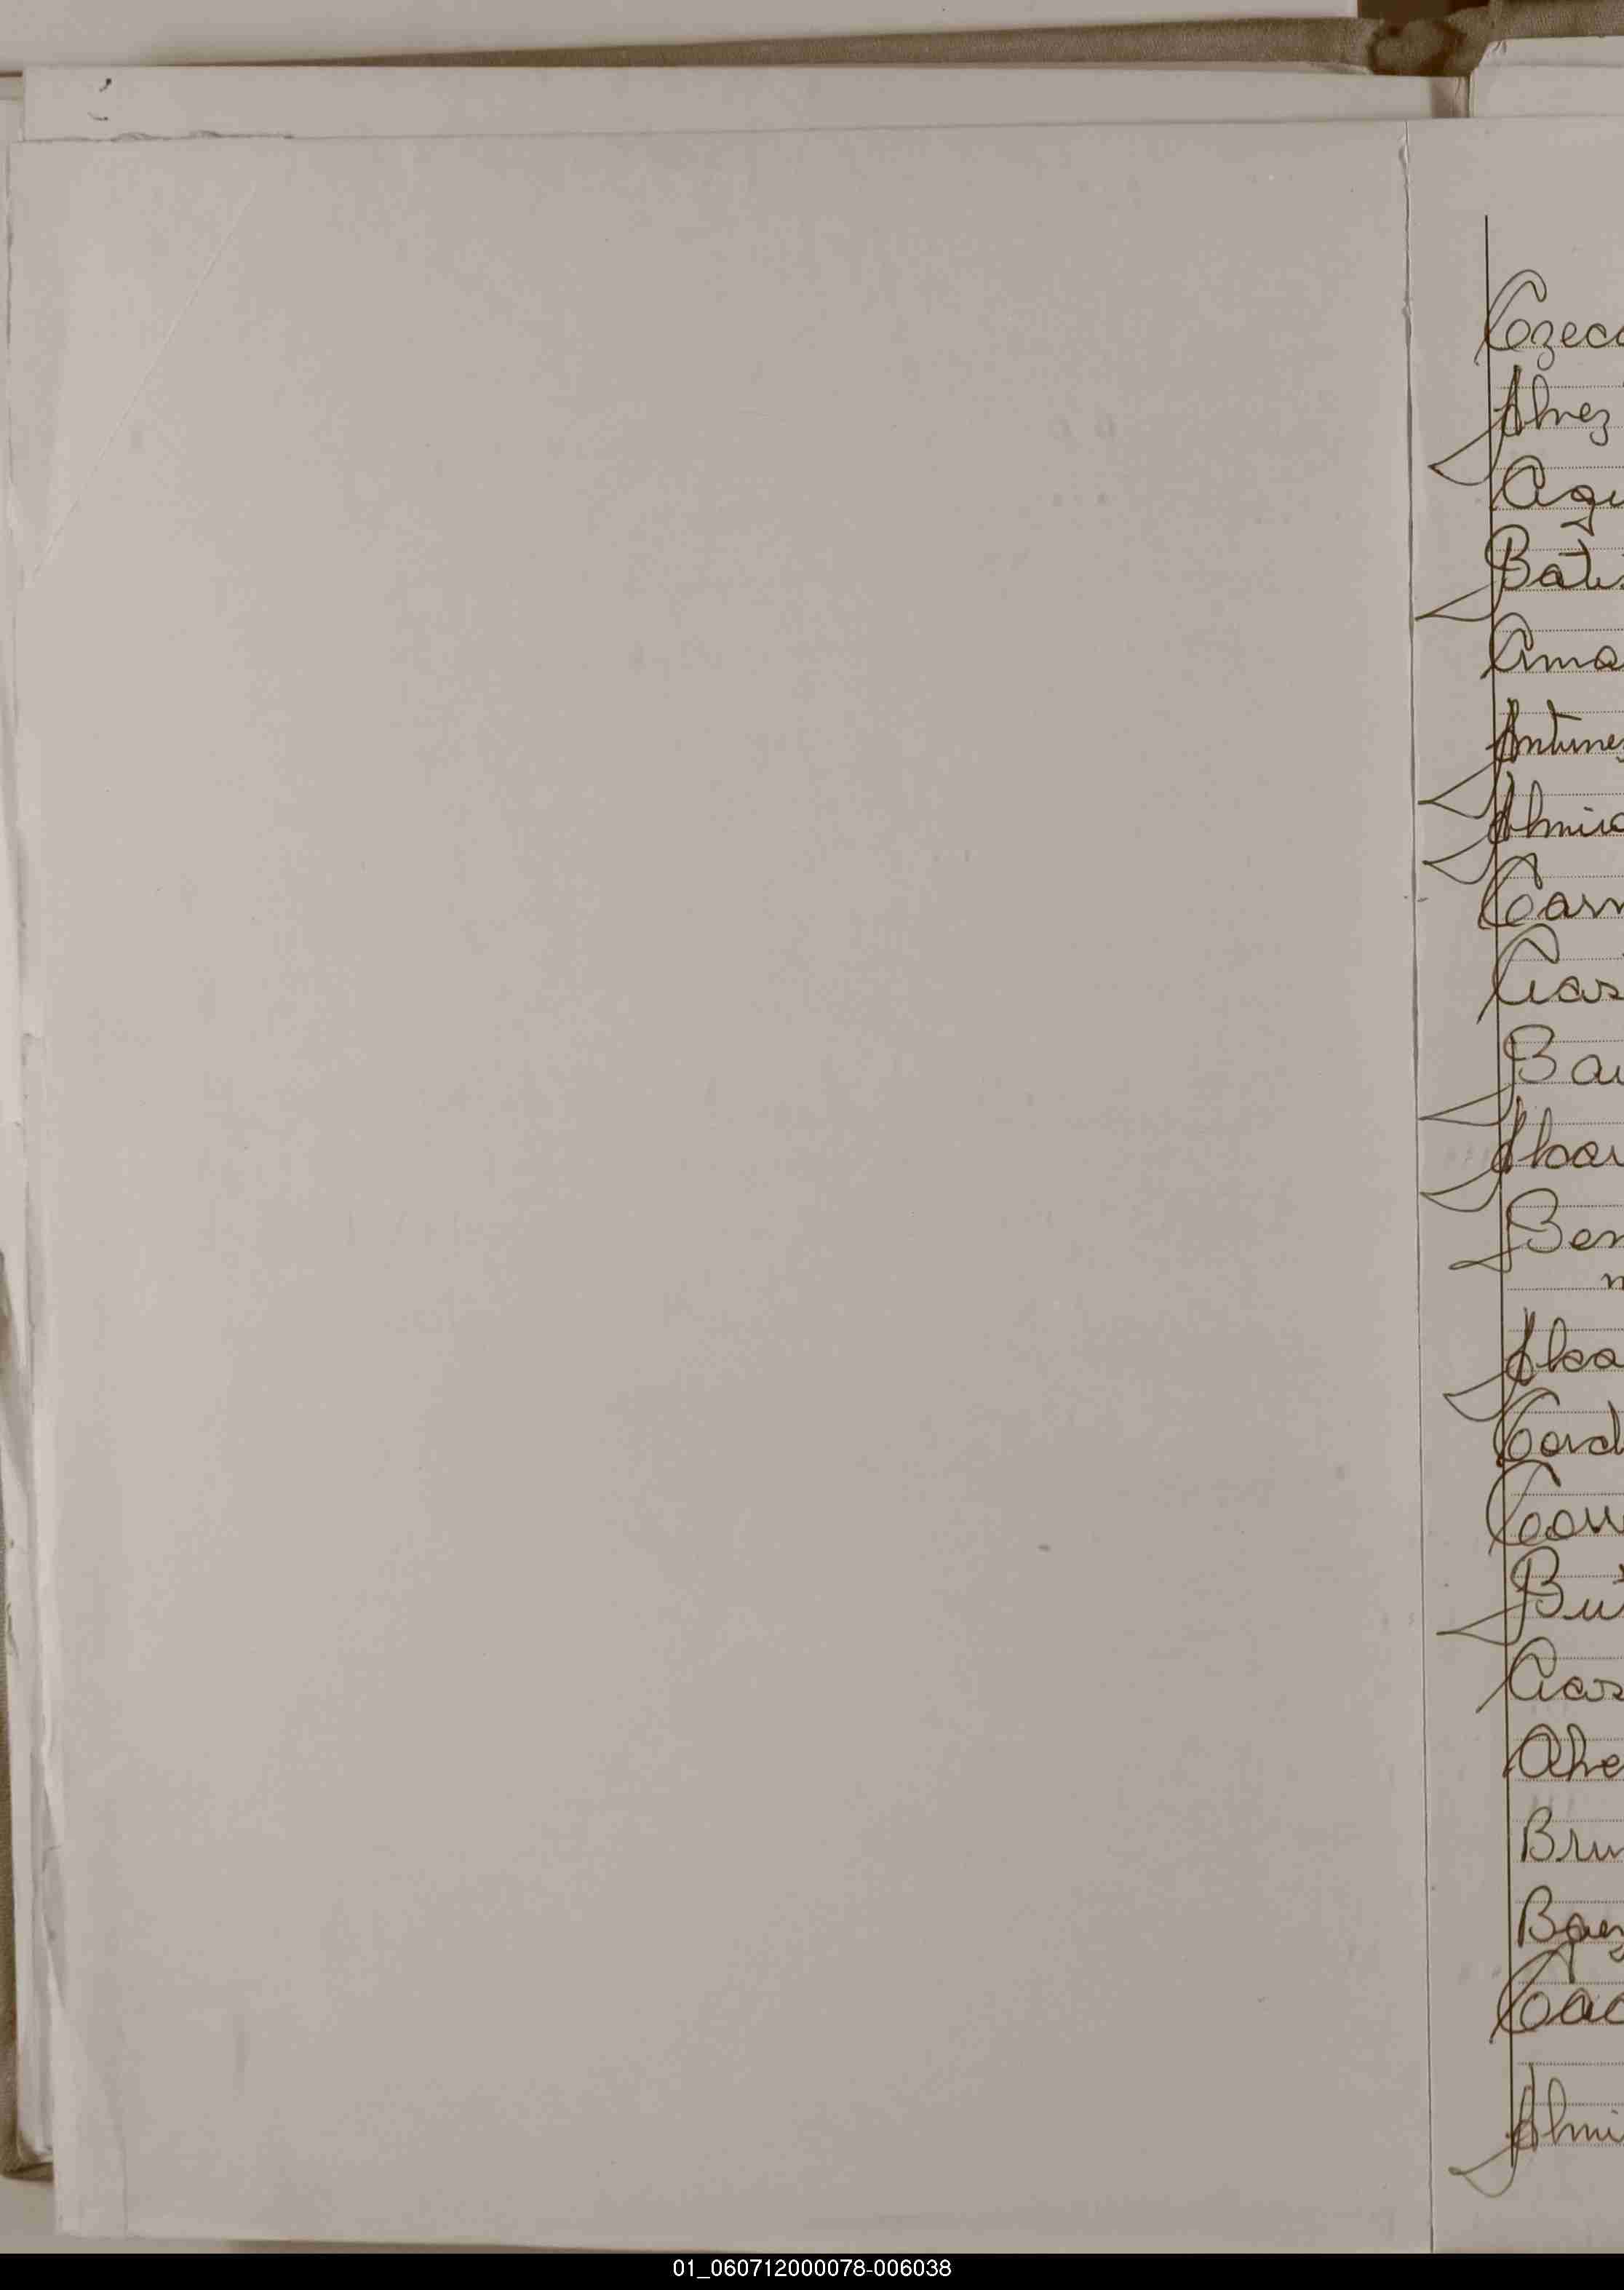 Cozec
Alvez
Agu
Batis
Ama
Antunez
Almira
Carm
Cas
Bau
Alvar
Ben
m
Alva
Card
Cou
But
Cas
Alve
Brun
Baez
Cac
Almi
01_060712000078-006038